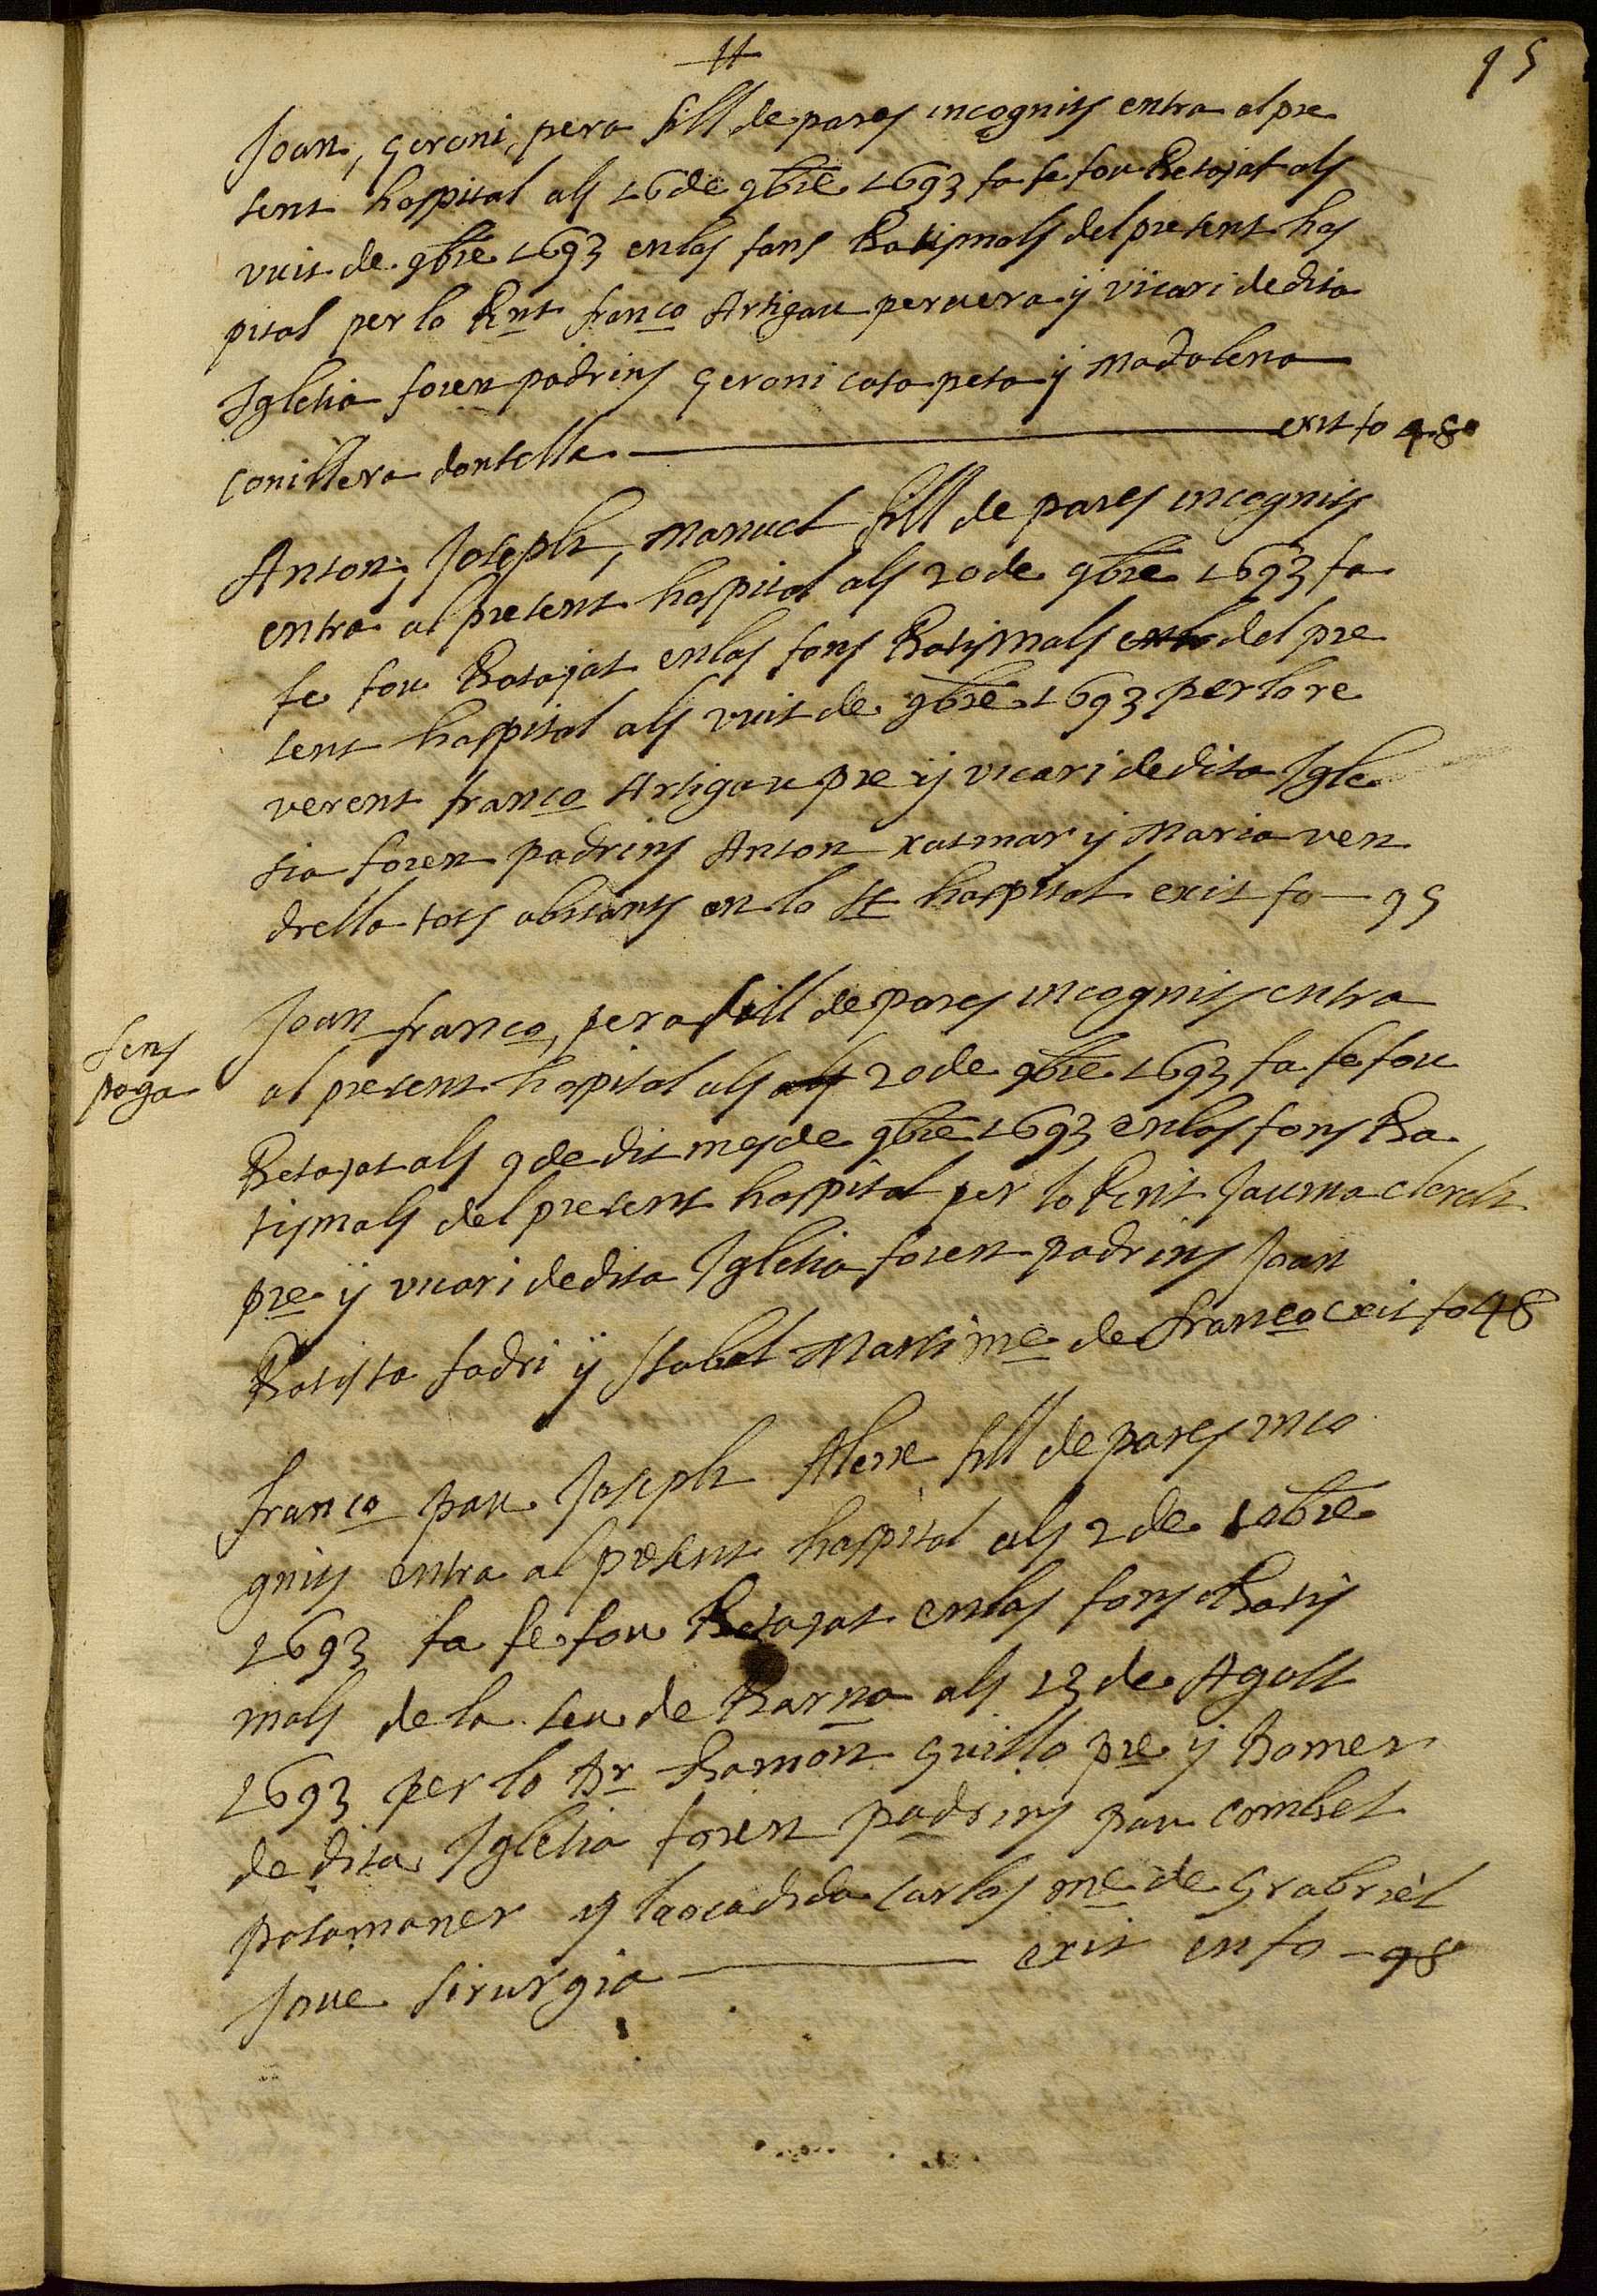 95
Joan, Geroni, pera fill de pares incognits entra al pre
sent hospital als 16 de 9bre 1693 fa fe fou Betajat als
vuit de 9bre 1693 en las fons Batismals del present hos
pital per lo Rnt franco Artigau pervera ÿ vicari de dita
Iglesia foren padrins Geroni casa peta ÿ Madalena
Conillera donsella exit fo 48
Anton, Joseph, Manuel fill de pares incognits
entra al present hospital als 20 de 9bre 1693 fa
fe fou Batajat en las fons Batismals del pre
sent hospital als vuit de 9bre 1693 per lo re
verent franco Artigau pre ÿ vicari de dita Igle
sia foren padrins Anton xatmar ÿ Maria ven
drella tots abitants en lo St hospital exit fo 95
Sens
paga
Joan franco, pera fill de pares incognits entra
al present hospital als als 20 de 9bre 1693 fa fe fou
Betajat als 9 de dit mes de 9bre 1693 en las fons Ba
tismals del present hospital per lo Rent Jauma clerch
pre ÿ vicari de dita Iglesia foren padrins Joan
Batista fadri ÿ Isabel Massi me de franco exit fo 48
franco pau Joseph Alexe fill de pares inco
gnits entra al present hospital als 2 de 10bre
1693 fa fe fou Betajat en las fons Batis
mals de la seu de Barna als 13 de Agost
1693 per lo Dr Ramon guillo pre ÿ Domer
de dita Iglesia foren padrins pau combel
patamaner y laocadida carlos me de Grabriel
Jove sirurgia exit en fo 98